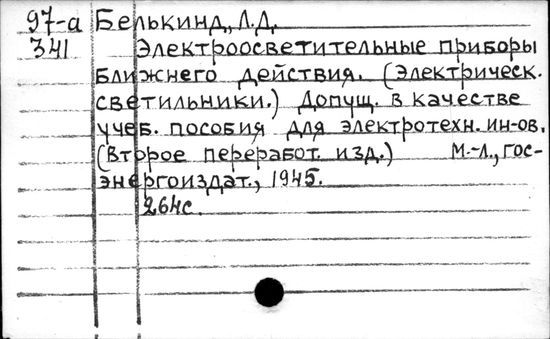 97-а Белькинд, Л.Д.
341 Электроосветительные приборы
ближнего действия. (Электрическ.
светильники.) Допущ. в качестве
учеб. пособия для электротехн. ин-ов.
(Второе переработ. изд.) М.-Л., Гос-
энергоиздат., 1945.
264с.